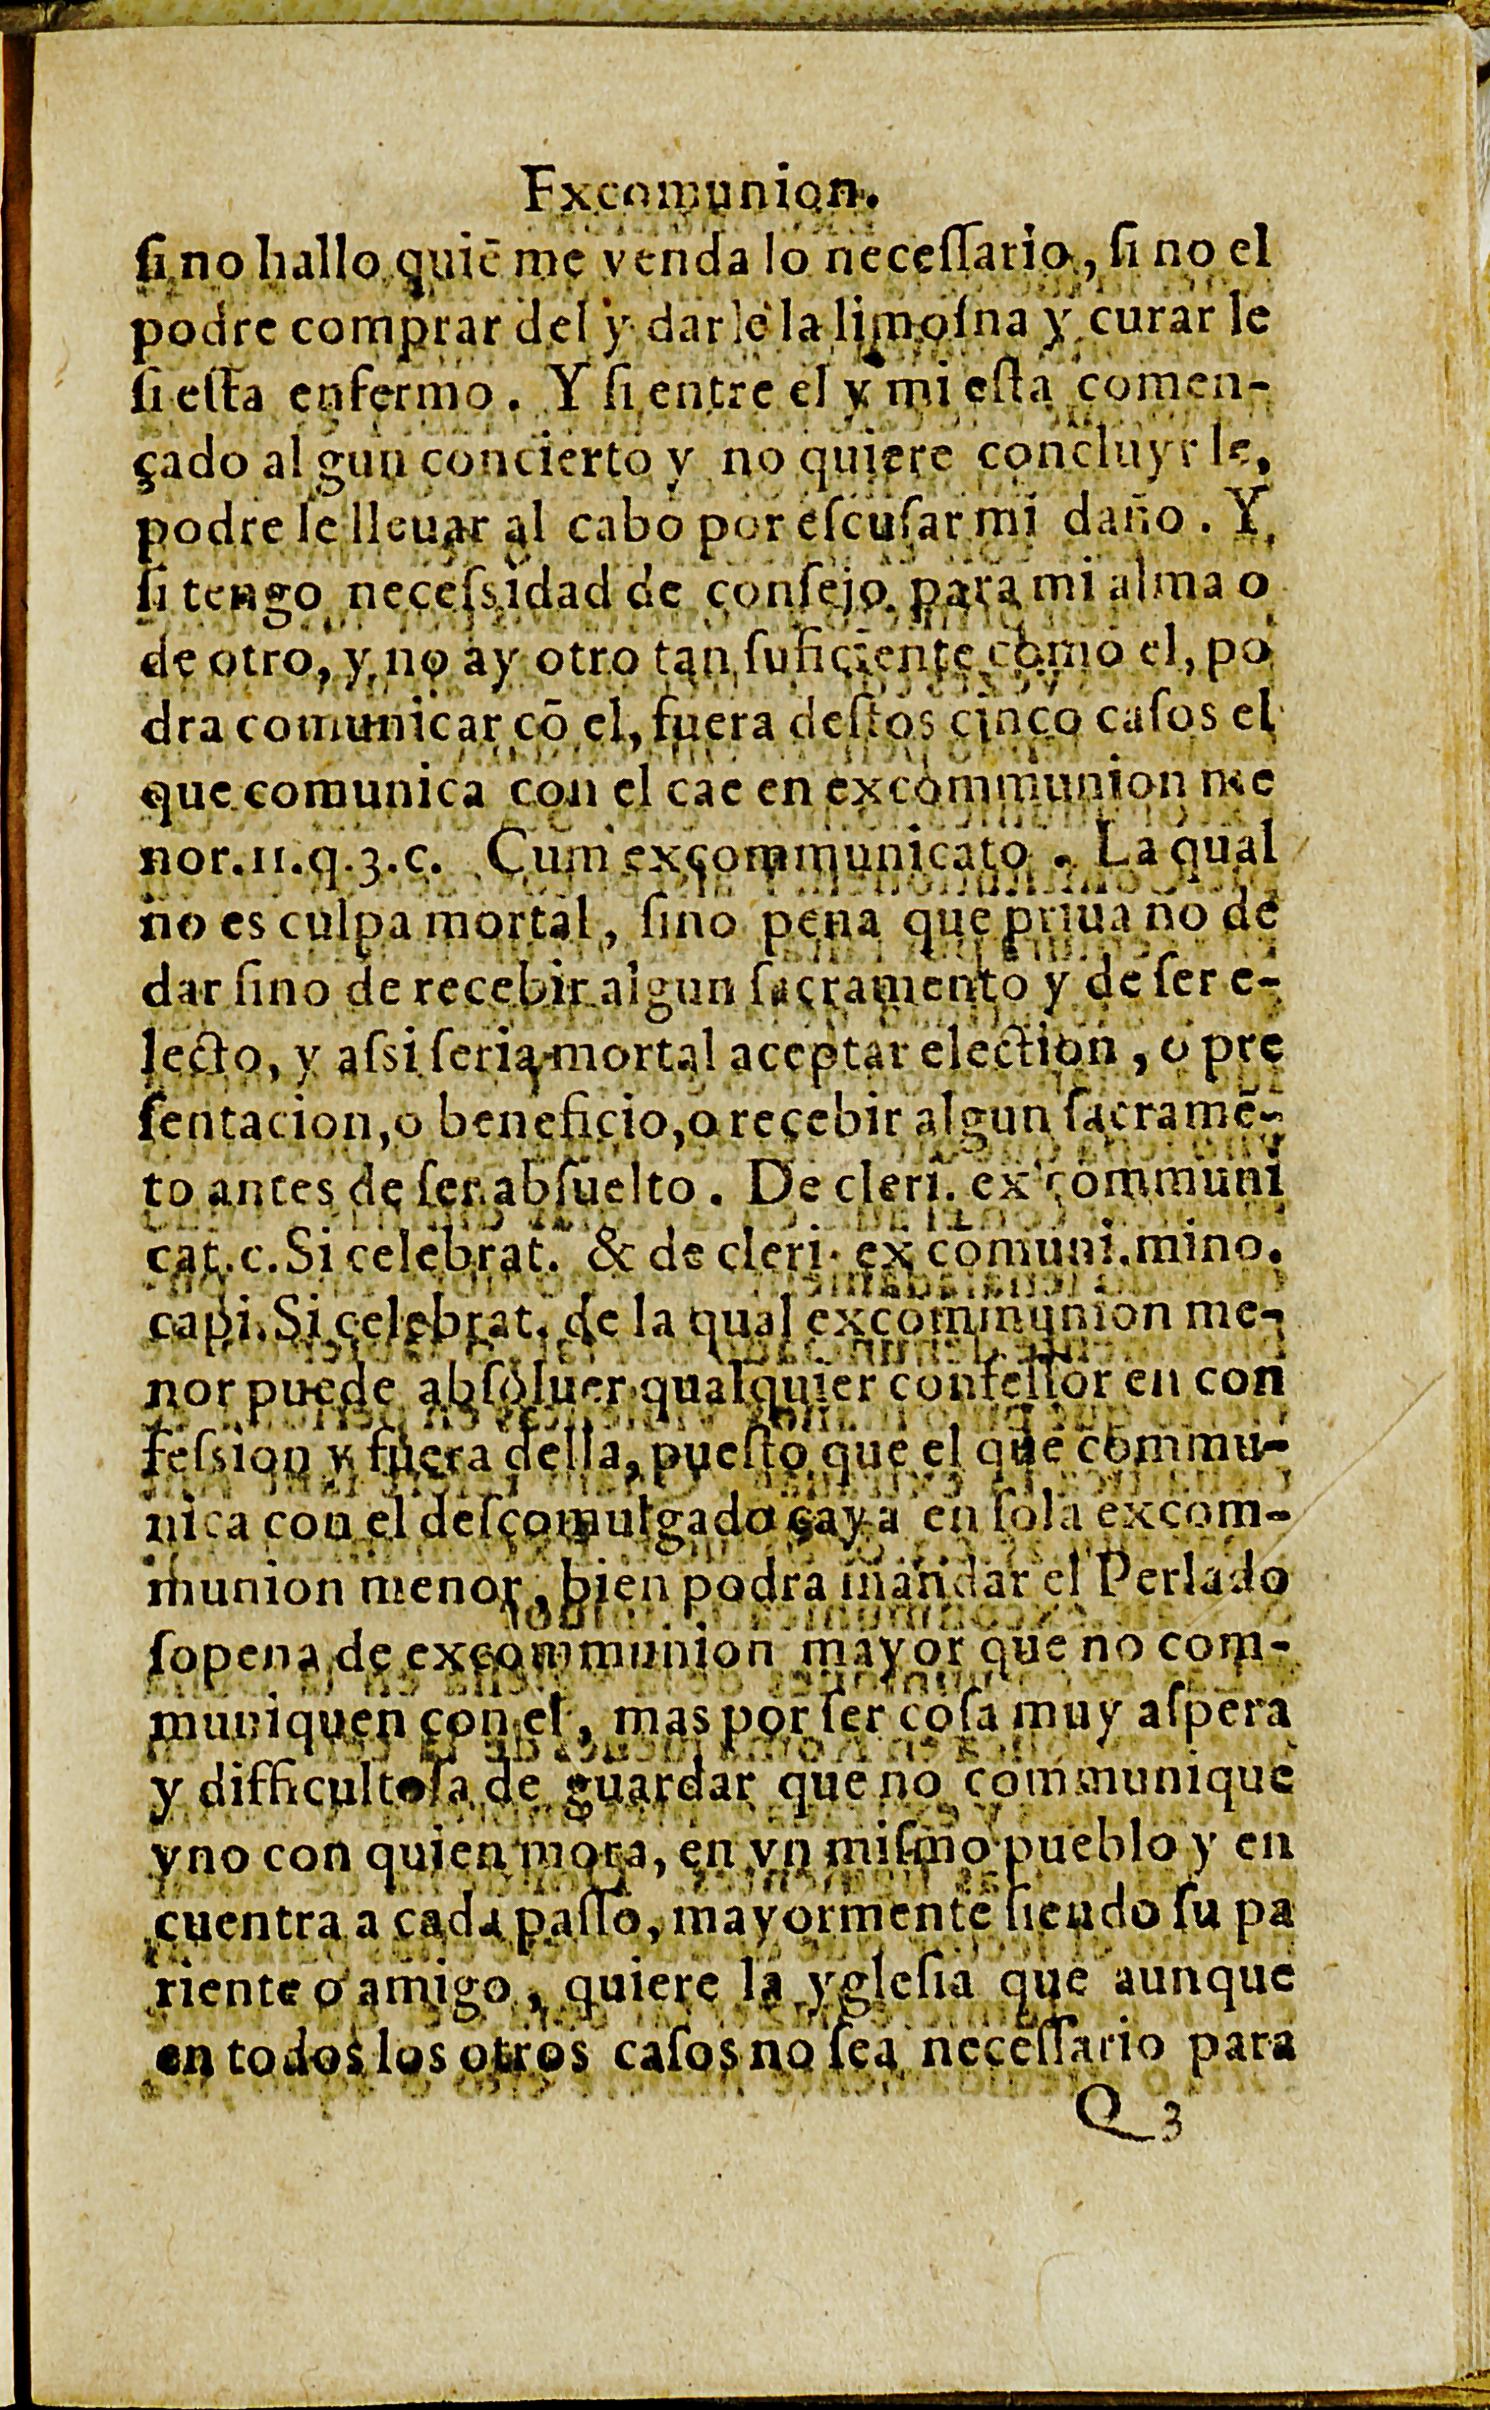 Excomunion.
ſi no hallo quiē me venda lo neceſſario, ſi no el
podre comprar del y darle la limoſna y curar le
ſi eſta enfermo. Y ſi entre el y mi eſta comen-
çado al gun concierto y no quiere concluyr le,
podre le lleuar al cabo por eſcuſar mi daño. Y
ſi tengo neceſsidad de conſejo para mi alma o
de otro, y no ay otro tan ſuficiente como el, po
dra comunicar cō el, fuera deſtos cinco caſos el
que comunica con el cae en excommunion me
nor.11.q.3.c. Cum excommunicato. La qual
no es culpa mortal, ſino pena que priua no de
dar ſino de recebir algun ſacramento y de ſer e-
lecto, y aſsi ſeria mortal aceptar election, o pre
ſentacion, o beneficio, o recebir algun ſacramē-
to antes de ſer abſuelto. De cleri. ex communi
cat.c.Si celebrat. & de cleri. ex comuni.mino.
capi.Si celebrat. de la qual excommunion me-
nor puede abſoluer qualquier confeſſor en con
feſsion y fuera della, pueſto que el que commu-
nica con el deſcomulgado caya en ſola excom-
munion menor, bien podra mandar el Perlado
ſopena de excommunion mayor que no com-
muniquen con el, mas por ſer coſa muy aſpera
y difficultoſa de guardar que no communique
yno con quien mora, en vn miſmo pueblo y en
cuentra a cada paſſo, mayormente ſiendo ſu pa
riente o amigo, quiere la ygleſia que aunque
en todos los otros caſos no ſea neceſſario para
Q 3